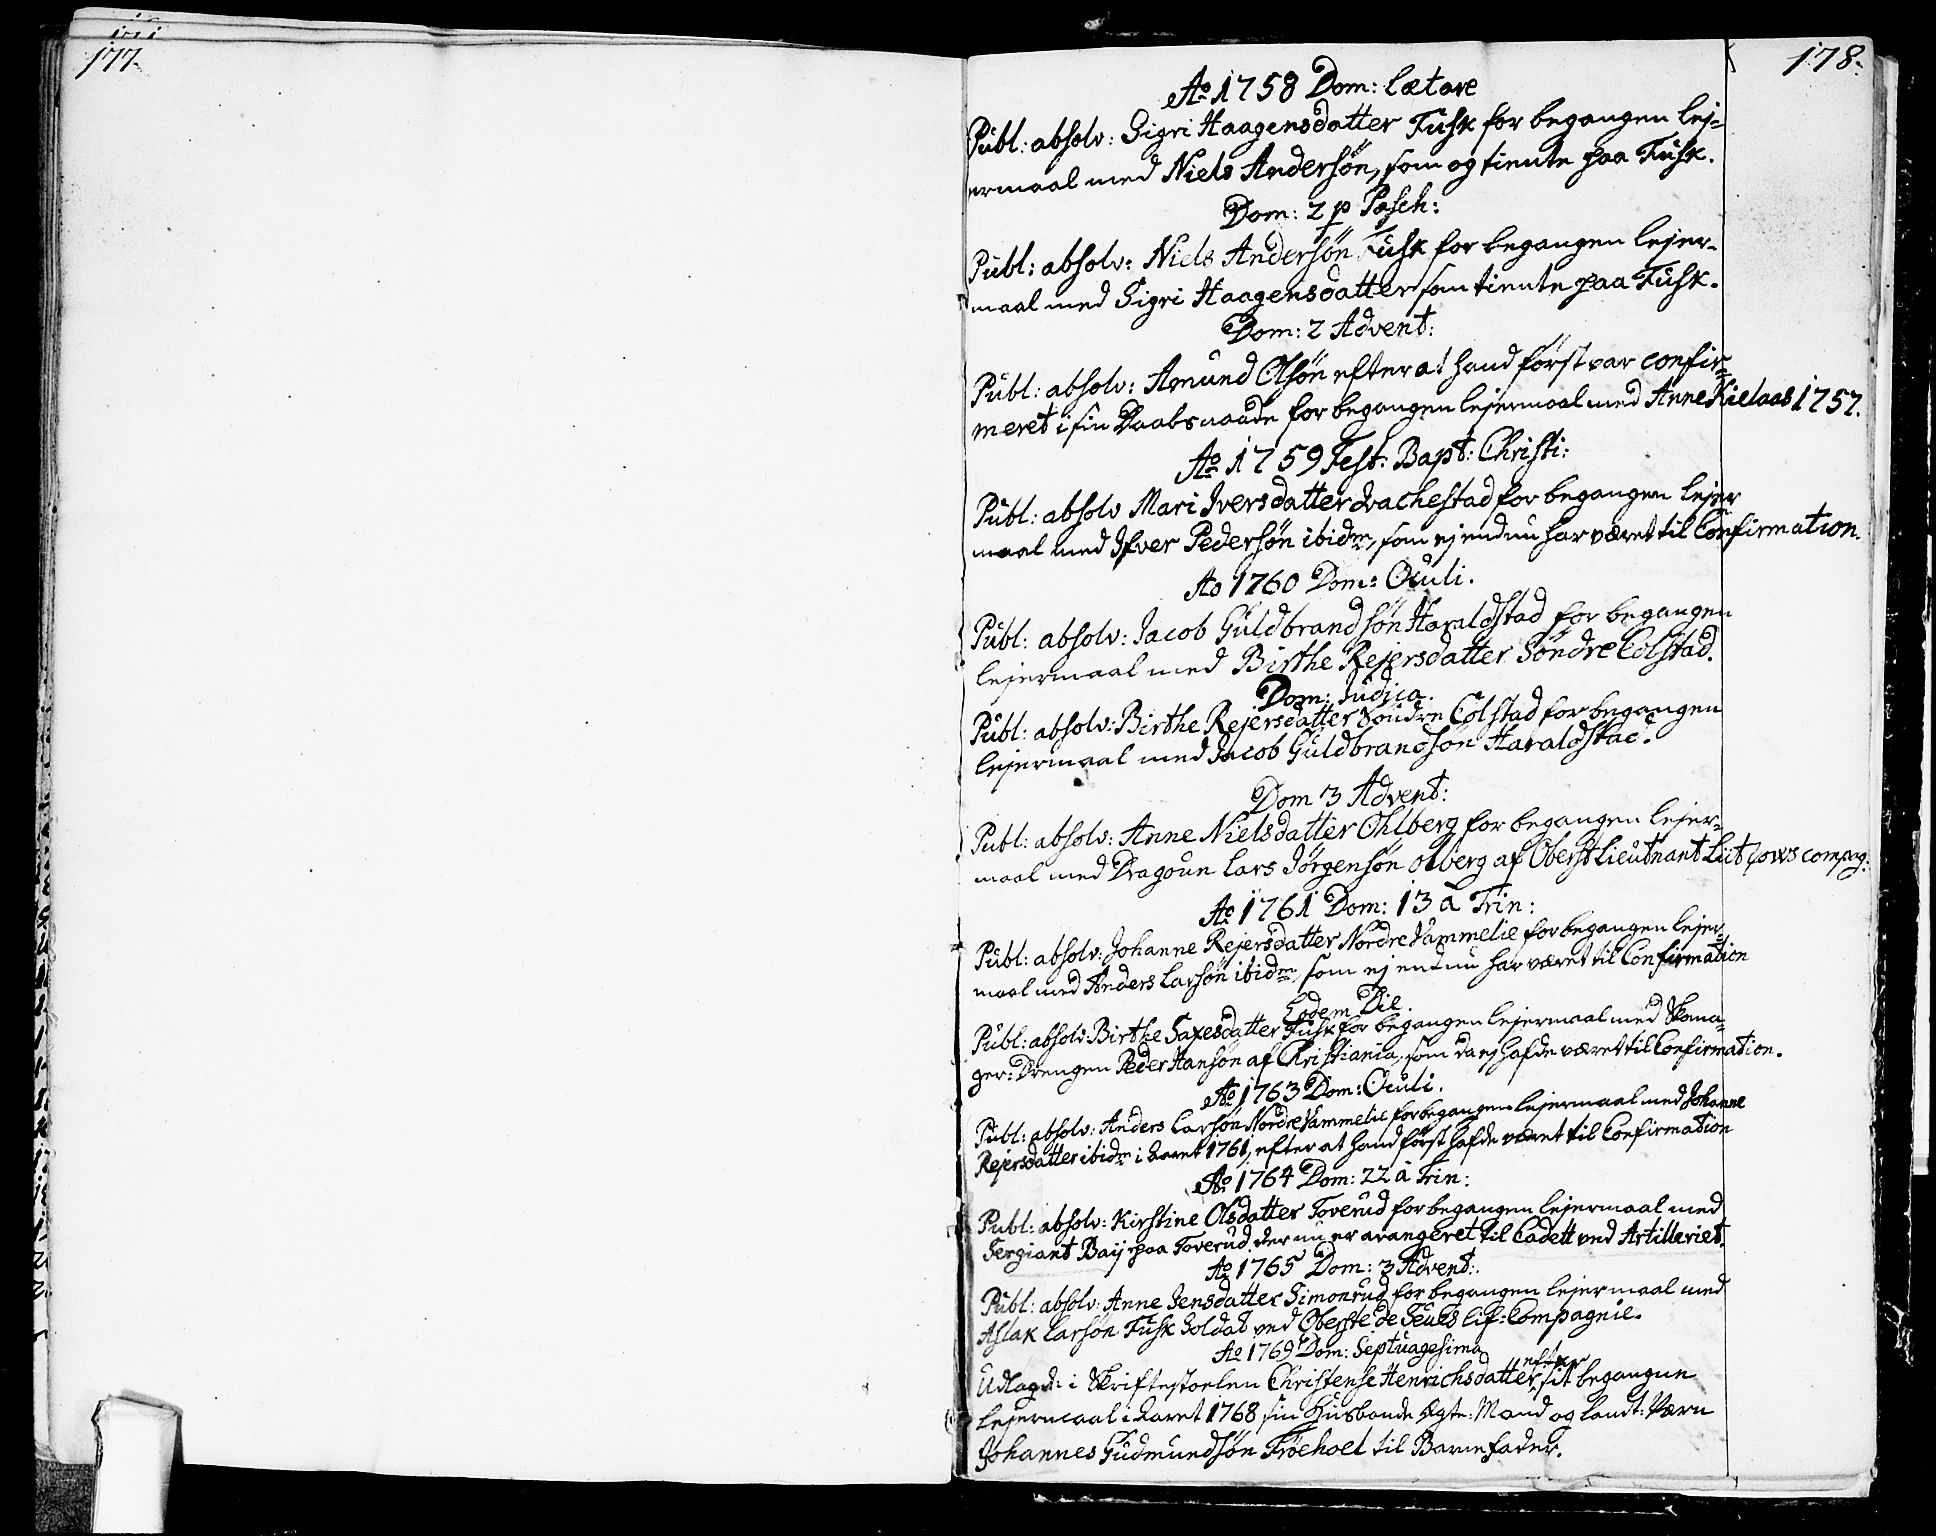 177.
178.
Ao 1758 Dom: Lætare
Publ: absolv: Sigri Haagensdatter Fusk for begangen lej-
ermaal med Niels Andersøn, som og tiente paa Fusk.
Dom: 2 p Pasch:
Publ: absolv: Niels Andersøn Fusk for begangen lejer-
maal med Sigri Haagensdatter som tiente paa Fusk.
Dom: 2 Advent:
Publ: absolv: Amund Olsøn efter at hand først var confir-
meret i sin Daabsnaade for begangen lejermaal med Anne Kielaas 1757.
Ao 1759 Fest: Bapt: Christi:
Publ: absolv Mari Iversdatter for begangen lejer
maal med Ifver Pedersøn ibidm, som ej endnu har været til Confirmation.
Ao 1760 Dom: Oculi.
Publ: absolv: Jacob Guldbrandsøn Haraldstad for begangen
lejermaal med Birthe Rejersdatter Søndre Colstad.
Dom: Judica.
Publ: absolv: Birthe Rejersdatter Søndre Colstad for begangen
lejermaal med Jacob Guldbrandsøn Haraldstad.
Dom 3 Advent:
Publ: absolv: Anne Nielsdatter Ohlberg for begangen lejer-
maal med Dragoun Lars Jørgensøn Olberg af Oberstlieutnant Lützows compag:
Ao 1761 Dom: 13 a Trin:
Publ: absolv: Johanne Rejersdatter Nordre Hammelie for begangen lejer
maal med Anders Larsøn ibidm, som ej endnu har været til Confirmation
Eodem Die.
Publ: absolv: Birthe Saxesdatter Fusk for begangen lejermaal med Skoma-
ger: Drengen Peder Hansøn af Christiania, som da ej hafde været til Confirmation.
Ao 1763 Dom: Oculi.
Publ: absolv: Anders Larsøn Nordre Hammelie for begangen lejermaal med Johanne
Rejersdatter ibidm i Aaret 1761, efter at hand først hafde været til Confirmation
Ao 1764 Dom: 22 a Trin:
Publ: absolv: Kirstine Olsdatter Toverud for begangen lejermaal med
Sergiant Baij paa Toverud. der nu er arangeret til Cadett ved Artilleriet.
Ao 1765 Dom: 3 Advent:
Publ: absolv: Anne Jensdatter Simonrud for begangen lejermaal med
Aslak Larsøn Fusk Soldat ved Oberste de Seues Lif: Compagnie.
Ao 1769 Dom: Septuagesima
efter
Udlagde i Skriftestoelen Christense Henrichsdatter, sit begangne
lejermaal i Aaret 1768, sin Husbonde Ægte: Mand og landt: Værn
Johannes Gudmundsøn Frøehoel til Barnefader.